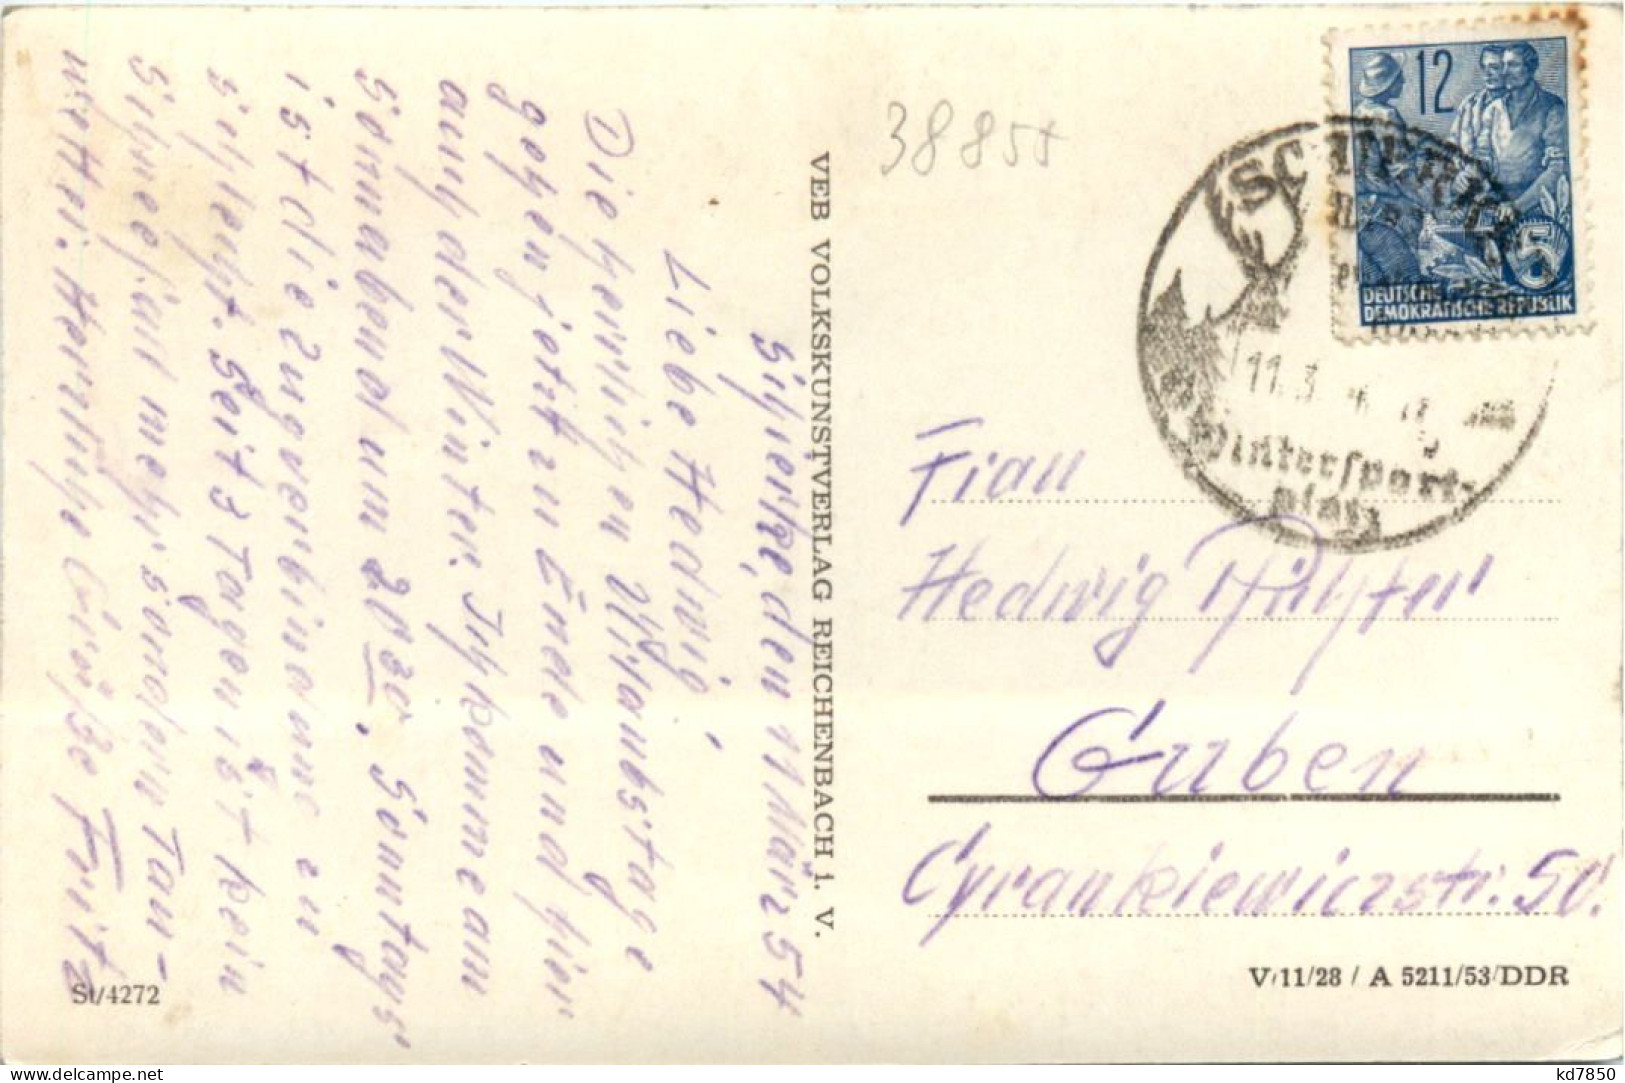 Schierke, den 11 März 54
Liebe Hedwig,
Die herrlichen Urlaubstage
gehen jetzt zu Ende und hier
auch der Winter. Ich komme am
Sonnabend um 20 30. Sonntags
ist die Zugverbindung zu
schlecht. Seit 3 Tagen ist kein
Schneefall mehr sondern Tau-
wetter. Herzliche Grüße Fritz
St/4272
VEB VOLKSKUNSTVERLAG REICHENBACH i. V.
38855
12
5
DEUTSCHE
DEMOKRATISCHE REPUBLIK
SCHIERKE
11.3
Wintersport-
platz
Frau
Hedwig
Guben
Cyrankiewiczstr. 50.
V/11/28 / A 5211/53/DDR
kd7850